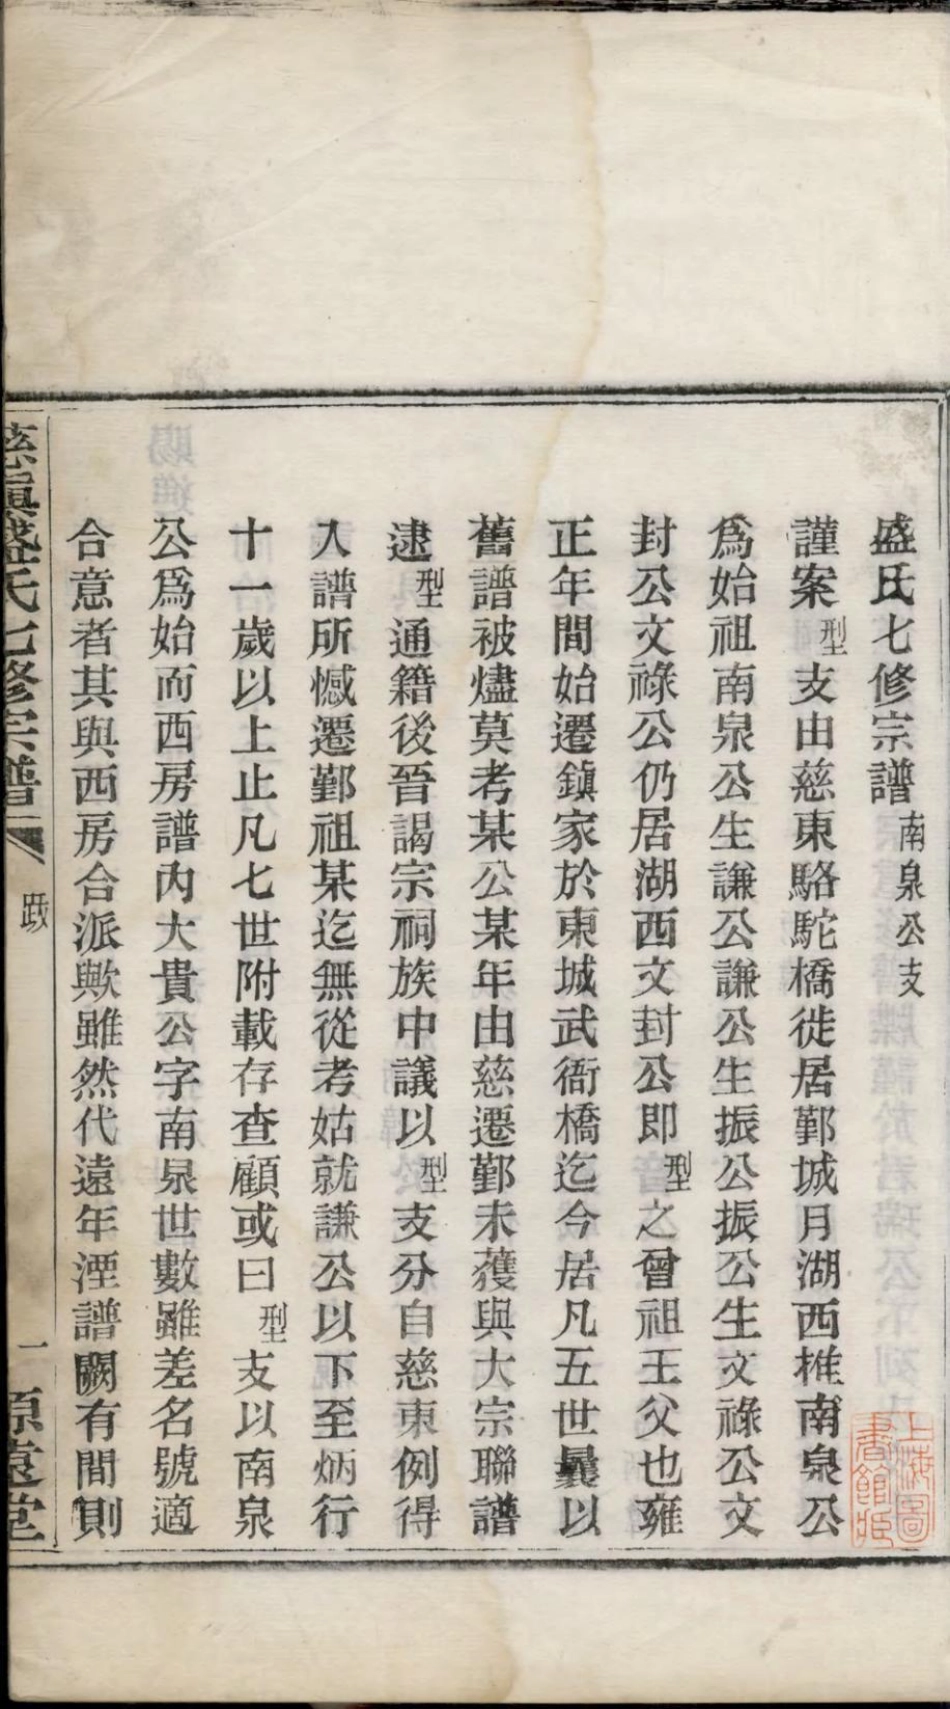 盛氏七修宗譜南泉公支
謹案型支由慈東駱駝橋徙居鄞城月湖西推南泉公
爲始祖南泉公生謙公謙公生振公振公生文祿公文
封公文祿公仍居湖西文封公即型之曾祖王父也雍
正年間始遷鎮家於東城武衙橋迄今居凡五世曩以
舊譜被燼莫考某公某年由慈遷鄞未獲與大宗聯譜
逮型通籍後晉謁宗祠族中議以型支分自慈東例得
入譜所憾遷鄞祖某迄無從考姑就謙公以下至炳行
十一歲以上止凡七世附載存查顧或曰型支以南泉
公爲始而西房譜內大貴公字南泉世數雖差名號適
合意者其與西房合派歟雖然代遠年湮譜闕有間則
慈鎭盛氏七修宗譜 跋 一 原遠堂
上海圖書館藏